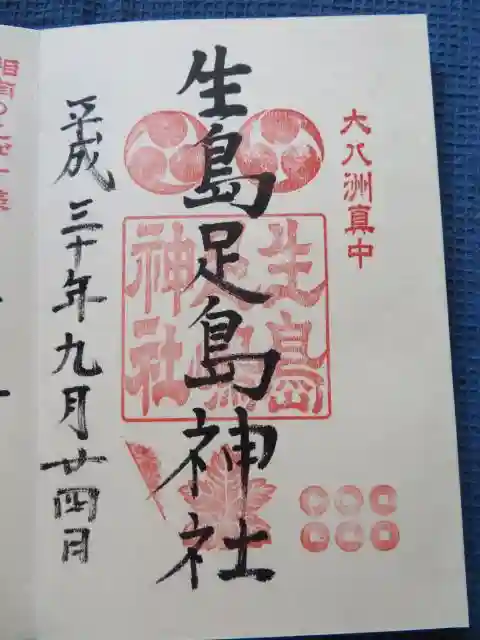 大八洲真中
生島足島神社
生島
足島
神社
平成三十年九月廿四日